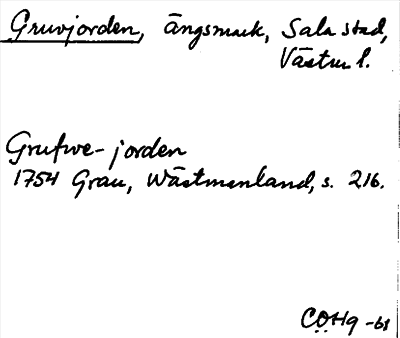 Gruvjorden, ängsmark, Sala stad,
Västm l.
Grufwe-jorden
1754 Grau, Wästmanland, s. 216.
CÖHg -61